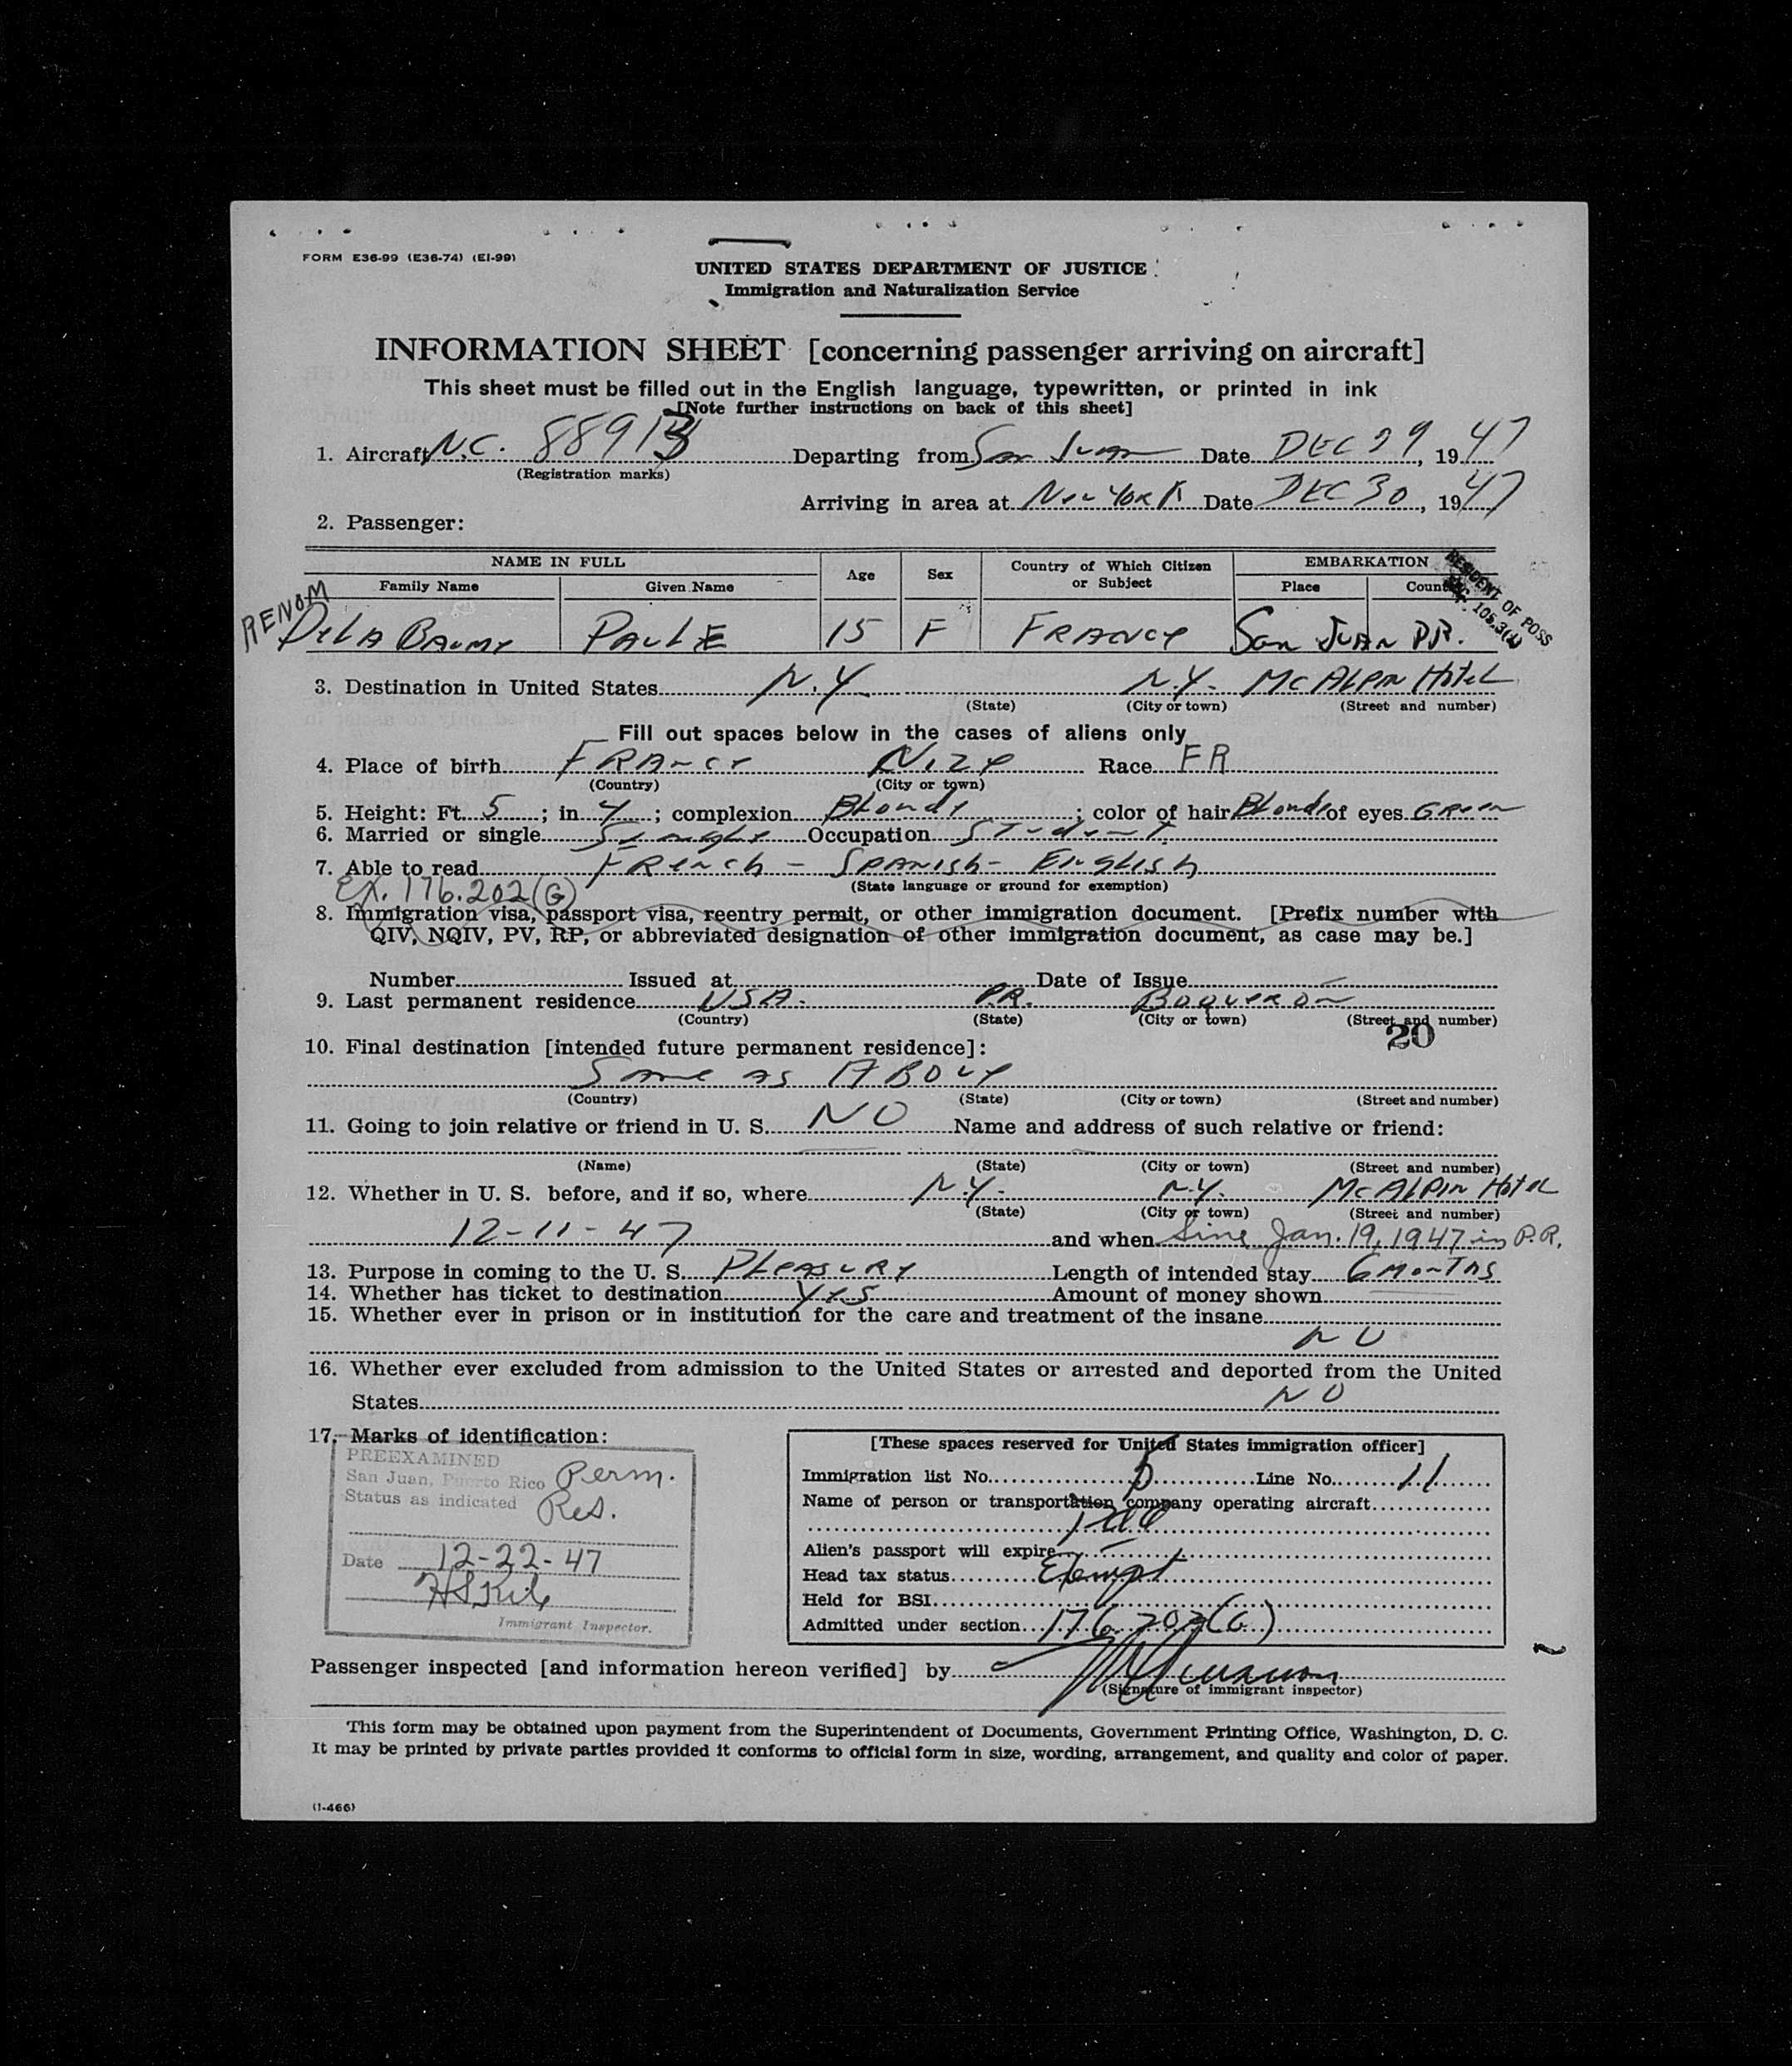 FORM E36-99 (E36-74) (EI-99)
UNITED STATES DEPARTMENT OF JUSTICE
Immigration and Naturalization Service
INFORMATION SHEET [concerning passenger arriving on aircraft]
This sheet must be filled out in the English language, typewritten, or printed in ink
[Note further instructions on back of this sheet]
1. Aircraft N.C. 88913 Departing from San Juan Date DEC 29, 1947
(Registration marks)
Arriving in area at New York Date DEC 30, 1947
2. Passenger:
NAME IN FULL Age Sex Country of Which Citizen or Subject EMBARKATION
Family Name Given Name Place
RESIDENT OF POSS
RENOM
De LA BAUMe PAULE 15 F FRANCe San JUAN P.R.
3. Destination in United States N.Y. N.Y. McALPIN HoteL
(State) (City or town) (Street and number)
Fill out spaces below in the cases of aliens only
4. Place of birth FRAnce Nize Race FR
(Country) (City or town)
5. Height: Ft. 5; in 4; complexion BLonde; color of hair BLonde of eyes GReen
6. Married or single Single Occupation STudenT
7. Able to read FRench - SPANish - English
(State language or ground for exemption)
Ex. 176.202(G)
8. Immigration visa, passport visa, reentry permit, or other immigration document. [Prefix number with
QIV, NQIV, PV, RP, or abbreviated designation of other immigration document, as case may be.]
Number Issued at Date of Issue
9. Last permanent residence USA. P.R. Boqueron
(Country) (State) (City or town) (Street and number)
20
10. Final destination [intended future permanent residence]:
Same as ABOVe
(Country) (State) (City or town) (Street and number)
11. Going to join relative or friend in U. S. NO Name and address of such relative or friend:
(Name) (State) (City or town) (Street and number)
12. Whether in U. S. before, and if so, where N.Y. N.Y. McALPIN HoteL
(State) (City or town) (Street and number)
12-11-47 and when Sinc Jan. 19, 1947 in P.R.
13. Purpose in coming to the U. S. PLeasure Length of intended stay 6 monTHs
14. Whether has ticket to destination Yes Amount of money shown
15. Whether ever in prison or in institution for the care and treatment of the insane
NO
16. Whether ever excluded from admission to the United States or arrested and deported from the United
States NO
17. Marks of identification:
PREEXAMINED
San Juan, Puerto Rico Perm.
Status as indicated Res.
Date 12-22-47
Immigrant Inspector.
[These spaces reserved for United States immigration officer]
Immigration list No. 5 Line No. 11
Name of person or transportation company operating aircraft
Alien's passport will expire
Head tax status Exempt
Held for BSI
Admitted under section 176.202(G)
Passenger inspected [and information hereon verified] by
(Signature of immigrant inspector)
This form may be obtained upon payment from the Superintendent of Documents, Government Printing Office, Washington, D. C.
It may be printed by private parties provided it conforms to official form in size, wording, arrangement, and quality and color of paper.
(I-466)